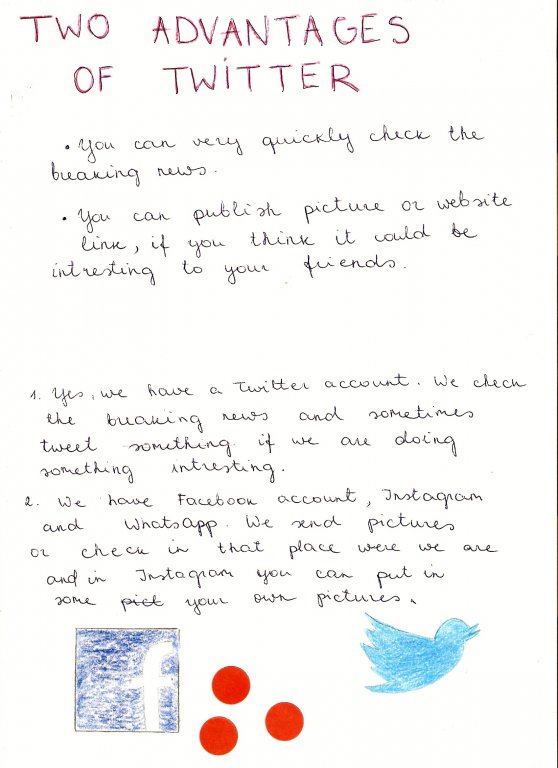 TWO ADVANTAGES
OF TWITTER
• You can very quickly check the
breaking news.
• You can publish picture or website
link, if you think it could be
intresting to your friends.
1. Yes, we have a Twitter account. We check
the breaking news and sometimes
tweet something if we are doing
something intresting.
2. We have Facebook account, Instagram
and WhatsApp. We send pictures
or check in that place were we are
and in Instagram you can put in
some pict your own pictures.
f